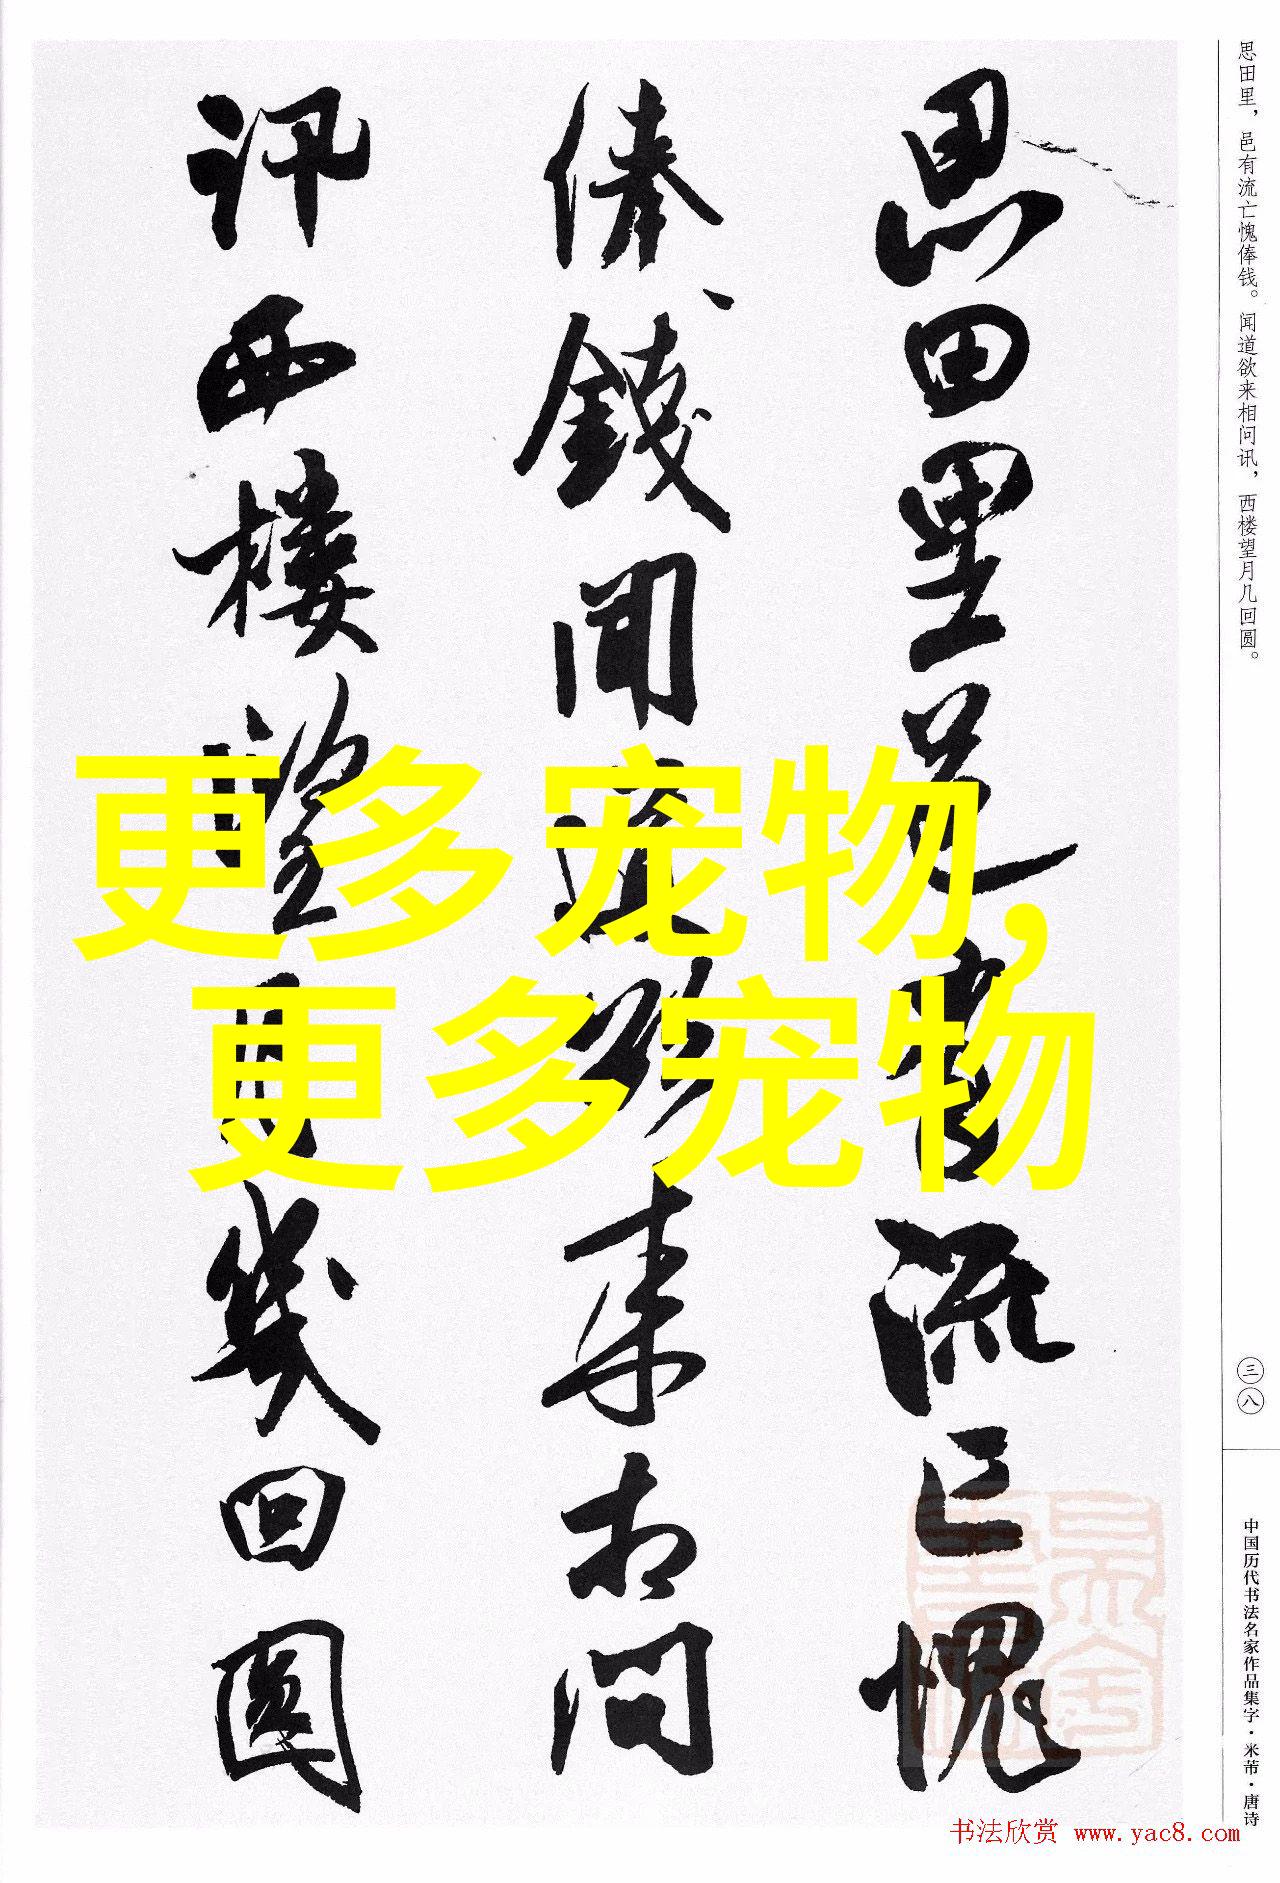 思田里邑有流亡愧
俸钱闻道欲来相问
讯西楼望月几回圆
更多宠物,
更多宠物
思田里，邑有流亡愧俸钱。闻道欲来相问讯，西楼望月几回圆。
三八
中国历代书法名家作品集字·米芾·唐诗
书法欣赏 www.yac8.com